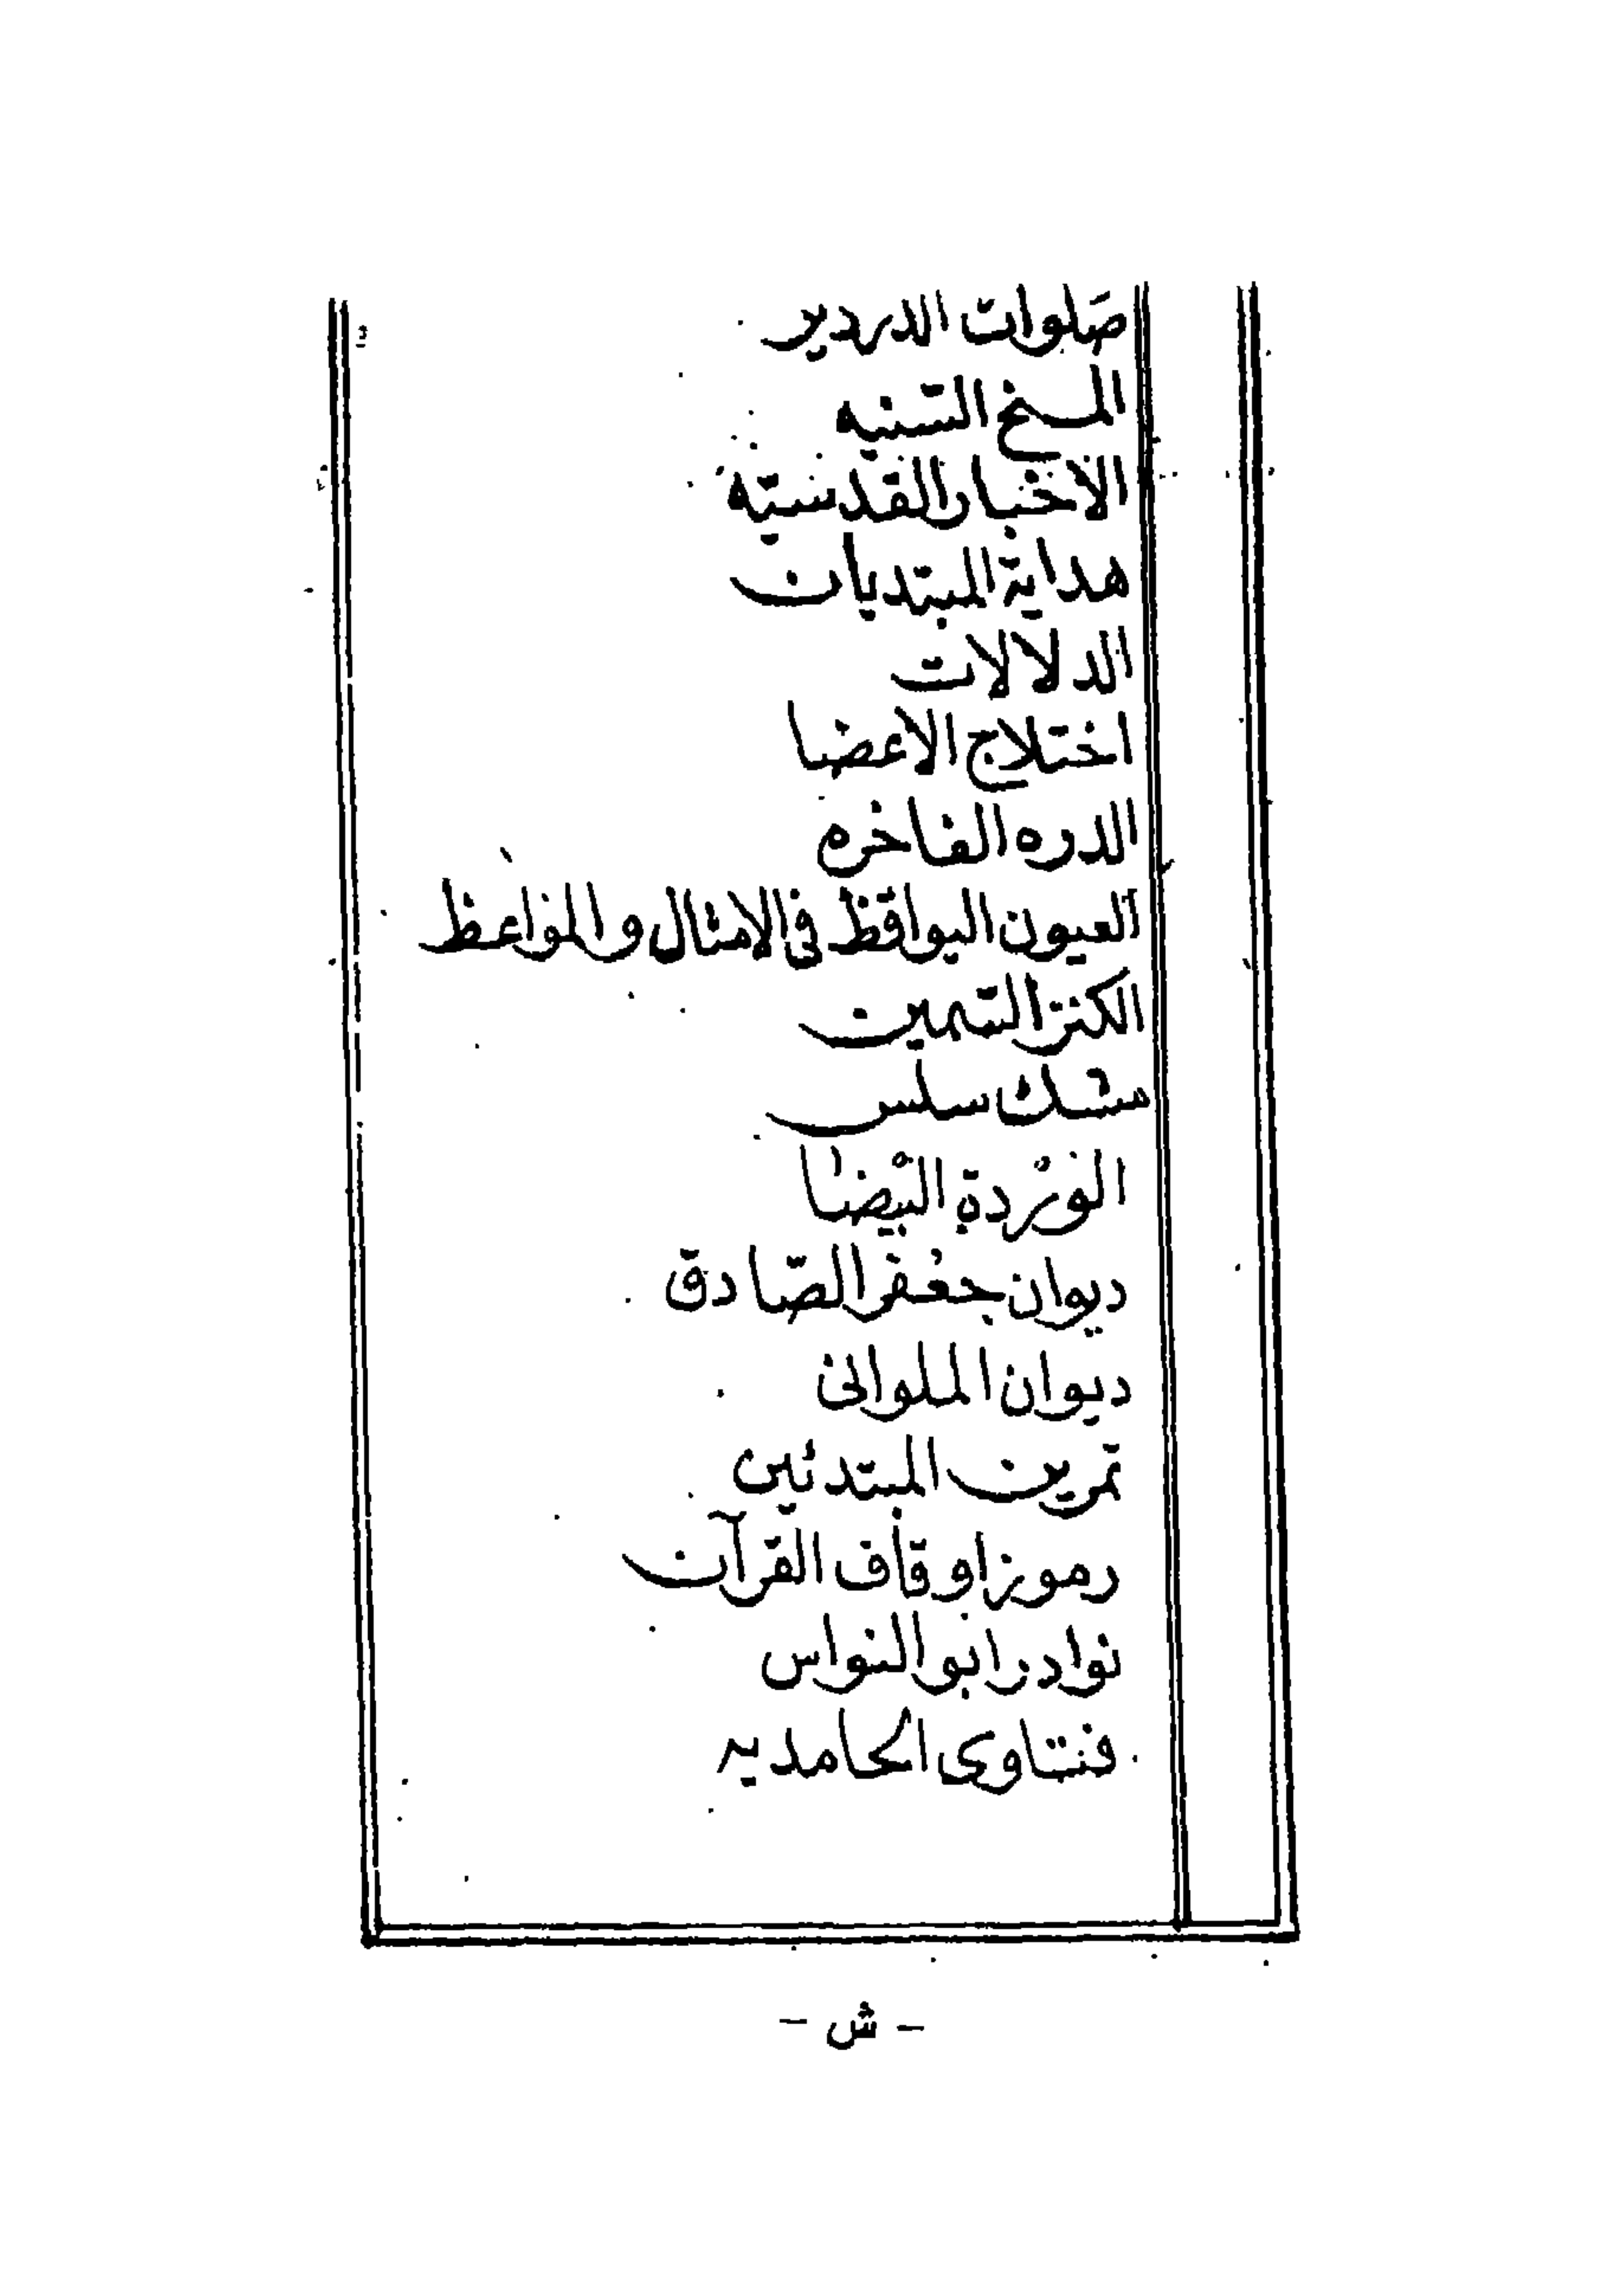 صَلوات الدردير
المنح السّنيه
الاخبار القدسيّه
هداية المبتديان
الدلالات
اختلاج الاعضا
الدره الفاخره
العيون اليواقظ فى الامثال والمواعظ
الكنز التمين
سلس
الوَرْدة البْيضا
ديوان جعفر الصّادق
ديوان الملوانى
تمرين المبتدئين
رموز اوقاف القرآن
نوادر ابو النواس
فتاوى الحامديه
- ش -